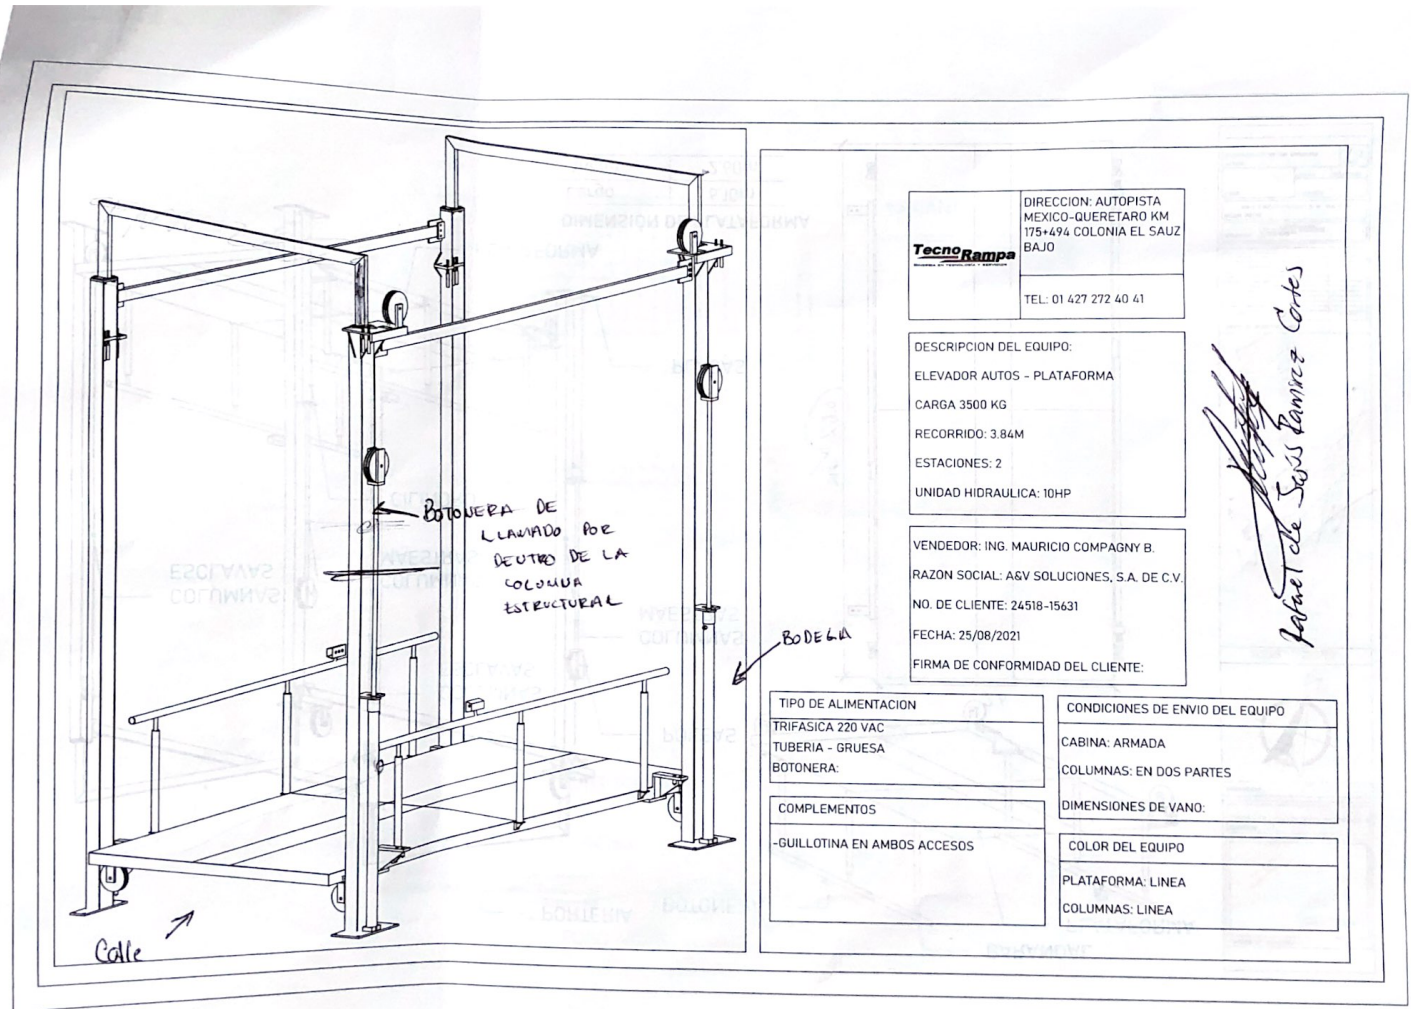 BOTONERA DE
LLAMADO POR
DENTRO DE LA
COLUMNA
ESTRUCTURAL
BODEGA
Calle
Tecno Rampa
DIRECCION: AUTOPISTA
MEXICO-QUERETARO KM
175+494 COLONIA EL SAUZ
BAJO
TEL: 01 427 272 40 41
DESCRIPCION DEL EQUIPO:
ELEVADOR AUTOS - PLATAFORMA
CARGA 3500 KG
RECORRIDO: 3.84M
ESTACIONES: 2
UNIDAD HIDRAULICA: 10HP
VENDEDOR: ING. MAURICIO COMPAGNY B.
RAZON SOCIAL: A&V SOLUCIONES, S.A. DE C.V.
NO. DE CLIENTE: 24518-15631
FECHA: 25/08/2021
FIRMA DE CONFORMIDAD DEL CLIENTE:
Rafael de Jesús Ramirez Cortes
TIPO DE ALIMENTACION
TRIFASICA 220 VAC
TUBERIA - GRUESA
BOTONERA:
COMPLEMENTOS
-GUILLOTINA EN AMBOS ACCESOS
CONDICIONES DE ENVIO DEL EQUIPO
CABINA: ARMADA
COLUMNAS: EN DOS PARTES
DIMENSIONES DE VANO:
COLOR DEL EQUIPO
PLATAFORMA: LINEA
COLUMNAS: LINEA